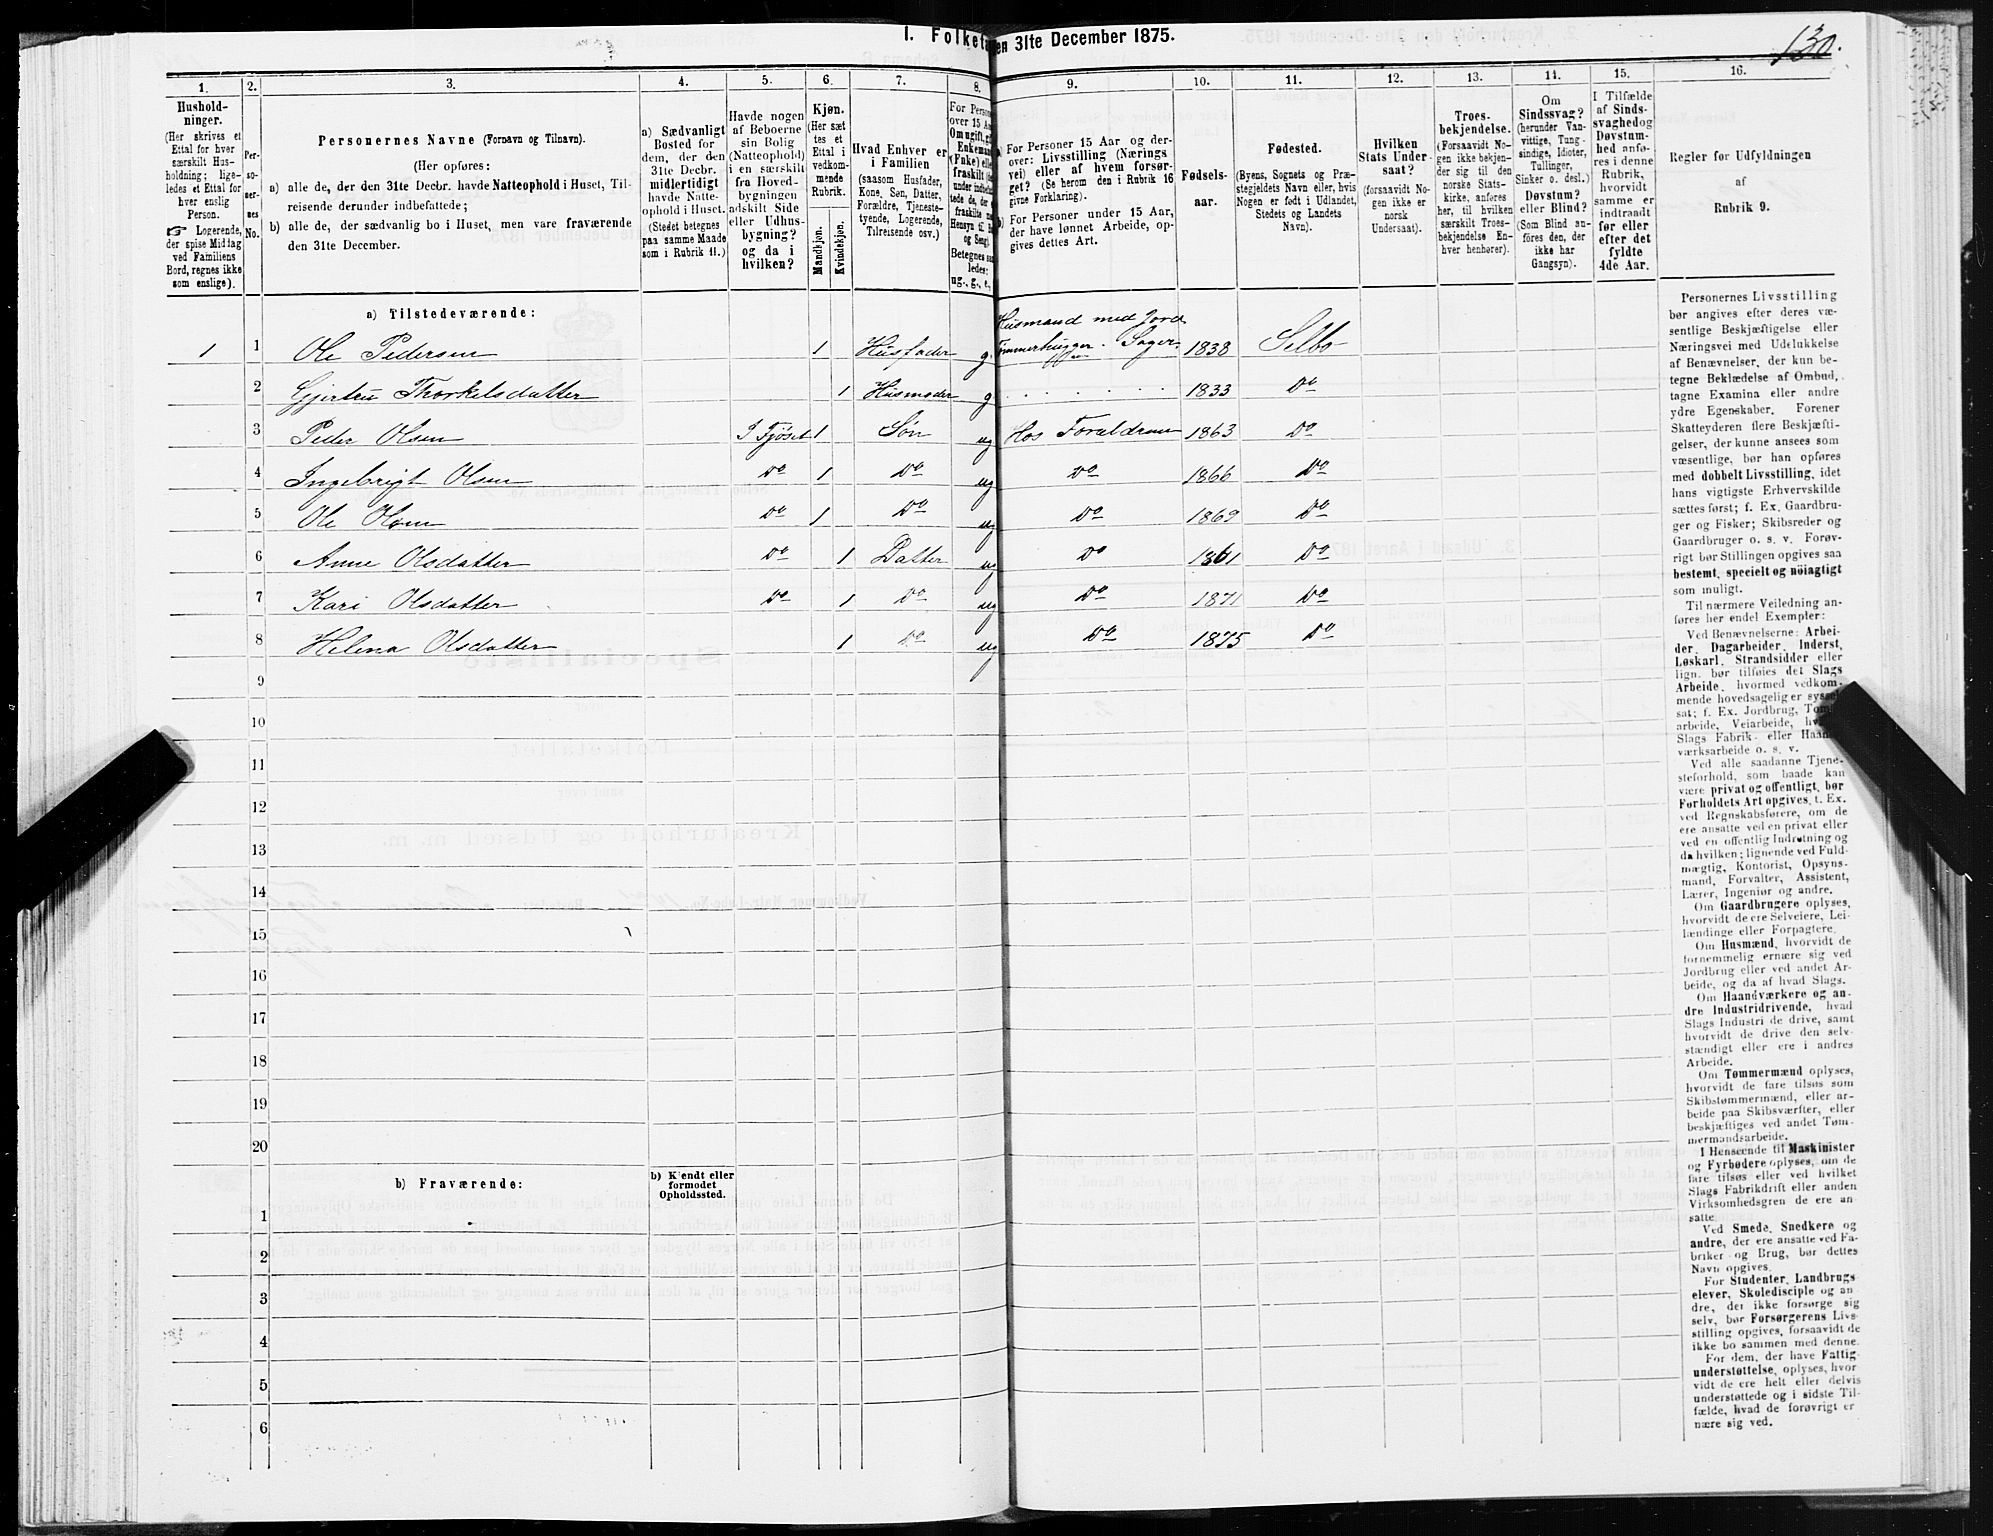 I. Folketa
en 31te December 1875.
130.
1.
2.
3.
4.
5.
6.
7.
8.
9.
10.
11.
12.
13.
14.
15.
16.
Hushold-
ninger.
(Her skrives et
Ettal for hver
særskilt Hus-
holdning; lige-
ledes et Ettal for
hver enslig
Person.
☞ Logerende,
der spise Middag
ved Familiens
Bord, regnes ikke
som enslige).
Per-
so-
ner-
nes
No.
Personernes Navne (Fornavn og Tilnavn).
(Her opføres:
a) alle de, der den 31te Decbr. havde Natteophold i Huset, Til-
reisende derunder indbefattede;
b) alle de, der sædvanlig bo i Huset, men vare fraværende
den 31te December.
a) Sædvanligt
Bosted for
dem, der den
31te Decbr.
midlertidigt
havde Natte-
ophold i Huset.
(Stedet betegnes
paa samme Maade
som i Rubrik 11.)
Havde nogen
af Beboerne
sin Bolig
(Natteophold)
i en særskilt
fra Hoved-
bygningen
adskilt Side
eller Udhus-
bygning?
og da i
hvilken?
Kjøn.
(Her sæt
tes et
Ettal i
vedkom-
mende
Rubrik.
Mandkjøn.
Kvindekjøn.
Hvad Enhver er
i Familien
(saasom Husfader,
Kone, Søn, Datter,
Forældre, Tjeneste-
tyende, Logerende,
Tilreisende osv.)
For Person
over 15 Aa
Om ugift, g
Enkeman
(Fnke) elle
fraskilt (
under indbe
tede de, de
fraskilte m
Hensyn ti. B
og Seng).
Betegnes saa
ledes:
ug., g., e.,
a) For Personer 15 Aar og der-
over: Livsstilling (Nærings
vei) eller af hvem forsør-
get? (Se herom den i Rubrik 16
givne Forklaring).
b) For Personer under 15 Aar,
der have lønnet Arbeide, op-
gives dettes Art.
Fødsels-
aar.
Fødested.
(Byens, Sognets og Præ-
stegjeldets Navn eller, hvis
Nogen er født i Udlandet,
Stedets og Landets
Navn).
Hvilken
Stats Under-
saat?
(forsaavidt No-
gen ikke er
norsk
Undersaat).
Troes-
bekjendelse.
(Forsaavidt No-
gen ikke bekjen-
der sig til den
norske Stats-
kirke, anføres
her, til hvilken
særskilt Troes-
bekjendelse En-
hver henhører).
Om
Sindssvag?
(herunder Van-
vittige, Tung-
sindige, Idioter,
Tullinger,
Sinker o. desl.)
Døvstum?
eller Blind?
(Som Blind an-
føres den, der
ikke har
Gangsyn).
I Tilfælde
af Sinds-
svaghed og
Døvstum-
hed anfø-
res i denne
Rubrik,
hvorvidt
samme er
indtraadt
før eller
efter det
fyldte
4de Aar.
Regler for Udfyldningen
af
Rubrik 9.
a) Tilstedeværende:
Husmand med Jord
1 1 Ole Pedersen 1 Husfader g. Tømmerhugger. 1838 Selbo
2 Gjertru Thorkelsdatter 1 Husmoder g 1833 Do
3 Peder Olsen I Fjöset 1 Søn ug Hos Foraldrene 1863 Do
4 Ingebrigt Olsen Do 1 Do ug Do 1866 Do
5 Ole Olsen Do 1 Do ug Do 1869 Do
6 Anne Olsdatter Do 1 Datter ug Do 1861 Do
7 Kari Olsdatter Do 1 Do ug Do 1871 Do
8 Helena Olsdatter 1 Do ug Do 1875 Do
9
10
11
12
13
14
15
16
17
18
19
20
b) Fraværende:
b) Kjendt eller
formodet
Opholdssted.
1
2
3
4
5
6
Personernes Livsstilling
bør angives efter deres væ-
sentlige Beskjæftigelse eller
Næringsvei med Udelukkelse
af Benævnelser, der kun be-
tegne Beklædelse af Ombud,
tagne Examina eller andre
ydre Egenskaber. Forener
Skatteyderen flere Beskjæfti-
gelser, der kunne ansees som
væsentlige, bør han opføres
med dobbelt Livsstilling, idet
hans vigtigste Erhvervskilde
sættes først; f. Ex. Gaardbru-
ger og Fisker; Skibsreder og
Gaardbruger o. s. v. Forøv-
rigt bør Stillingen opgives saa
bestemt, specielt og nöiagtigt
som muligt.
Til nærmere Veiledning an-
føres her endel Exempler:
Ved Benævnelserne: Arbei-
der, Dagarbeider, Inderst,
Løskarl, Strandsidder eller
lign. bør tilføies det Slags
Arbeide, hvormed vedkom-
mende hovedsagelig er syssel
sat; f. Ex. Jordbrug, Tom
arbeide, Veiarbeide, hv
Slags Fabrik- eller Haand
værksarbeide o. s. v.
Ved alle saadanne Tjene-
steforhold, som baade kan
være privat og offentligt, bør
Forholdets Art opgives, t. Ex.
ved Regnskabsførere, om de
ere ansatte ved en privat eller
ved en offentlig Indretning og
da hvilken; lignende ved Fuld-
mægtig, Kontorist, Opsyns-
mand, Forvalter, Assistent,
Lærer, Ingeniør og andre.
Om Gaardbrugere oplyses,
hvorvidt de ere Selveiere, Lei-
lændinge eller Forpagtere.
Om Husmænd, hvorvidt de
fornemmelig ernære sig ved
Jordbrug eller ved andet Ar-
beide, og da af hvad Slags.
Om Haandværkere og an-
dre Industridrivende, hvad
Slags Industri de drive, samt
hvorvidt de drive den selv-
stændigt eller ere i andres
Arbeide.
Om Tømmermænd oplyses,
hvorvidt de fare tilsøs som
Skibstømmermænd, eller ar-
beide paa Skibsværfter, eller
beskjæftiges ved andet Tøm-
mermandsarbeide.
I Henseende til Maskinister
og Fyrbødere oplyses, om de
fare tilsøs eller ved hvilket
Slags Fabrikdrift eller anden
Virksomhedsgren de ere an-
satte
Ved Smede, Snedkere og
andre, der ere ansatte ved Fa-
briker og Brug, bør dettes
Navn opgives.
For Studenter, Landbrugs
elever, Skoledisciple og an
dre, der ikke forsørge sig
selv, bør Forsørgerens Livs-
stilling opgives, forsaavidt de
ikke bo sammen med denne.
For dem, der have Fattig-
understøttelse, oplyses, hvor
vidt de ere helt eller delvis
understøttede og i sidste Til-
fælde, hvad de forøvrigt er
nære sig ved.